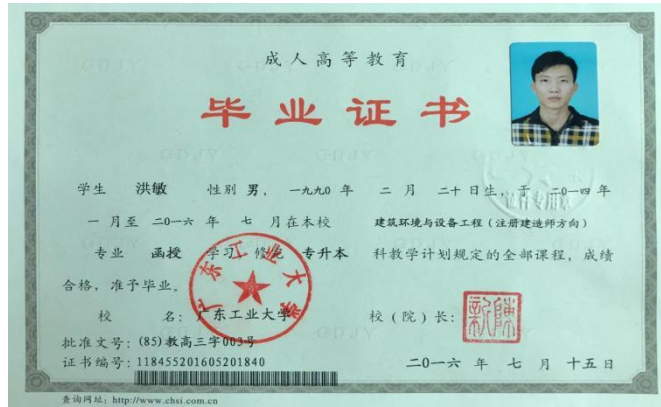 成人高等教育
毕业证书
学生 洪敏 性别 男，一九九0 年 二 月 二十 日生，于 二0一四 年
一 月至 二0一六 年 七 月在本校 建筑环境与设备工程（注册建造师方向）
专业 函授 学习，修完 专升本 科教学计划规定的全部课程，成绩
合格，准予毕业。
校 名：广东工业大学 校（院）长：
批准文号：(85)教高三字003号
证书编号：118455201605201840
二0一六 年 七 月 十五 日
查询网址：http://www.chsi.com.cn
广东工业大学